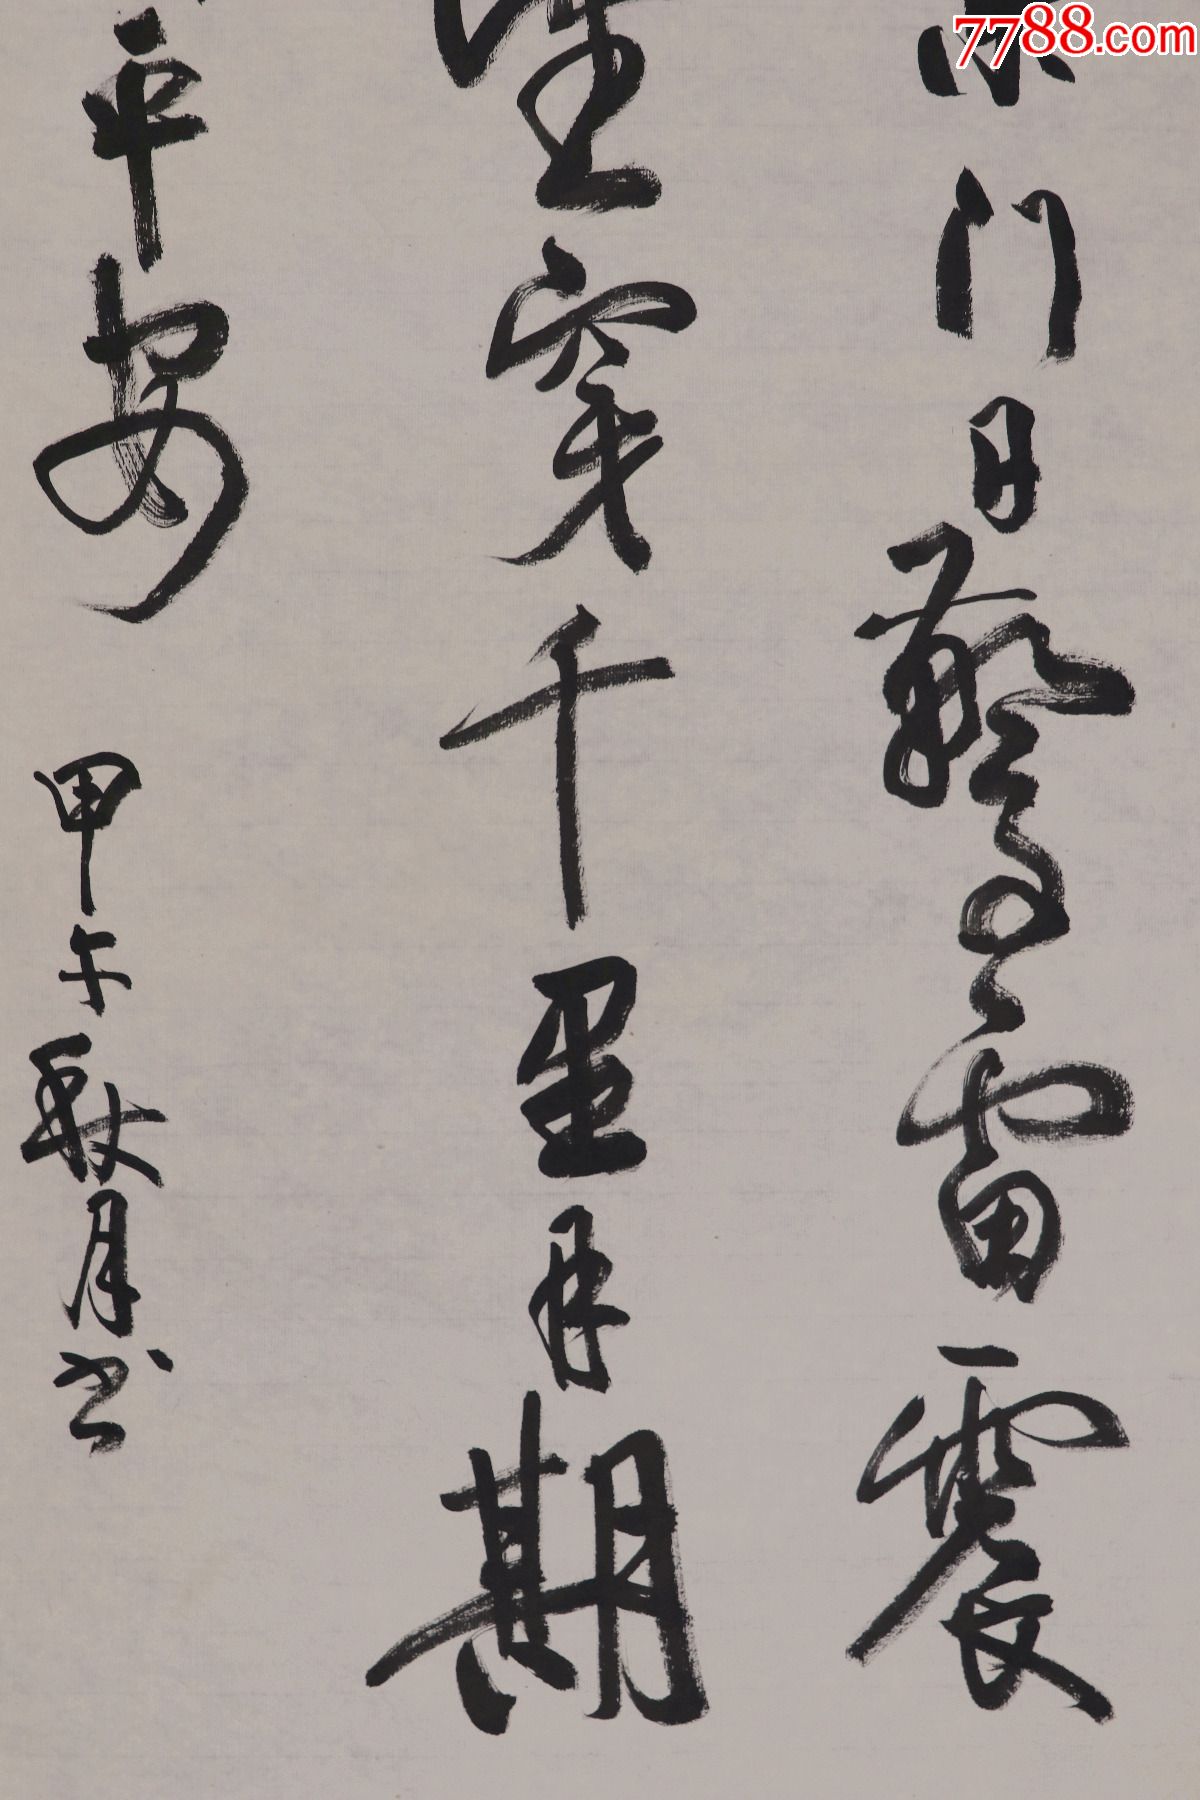 7788.com
门日驚雷震
望穿千里期
平安
甲午秋月书